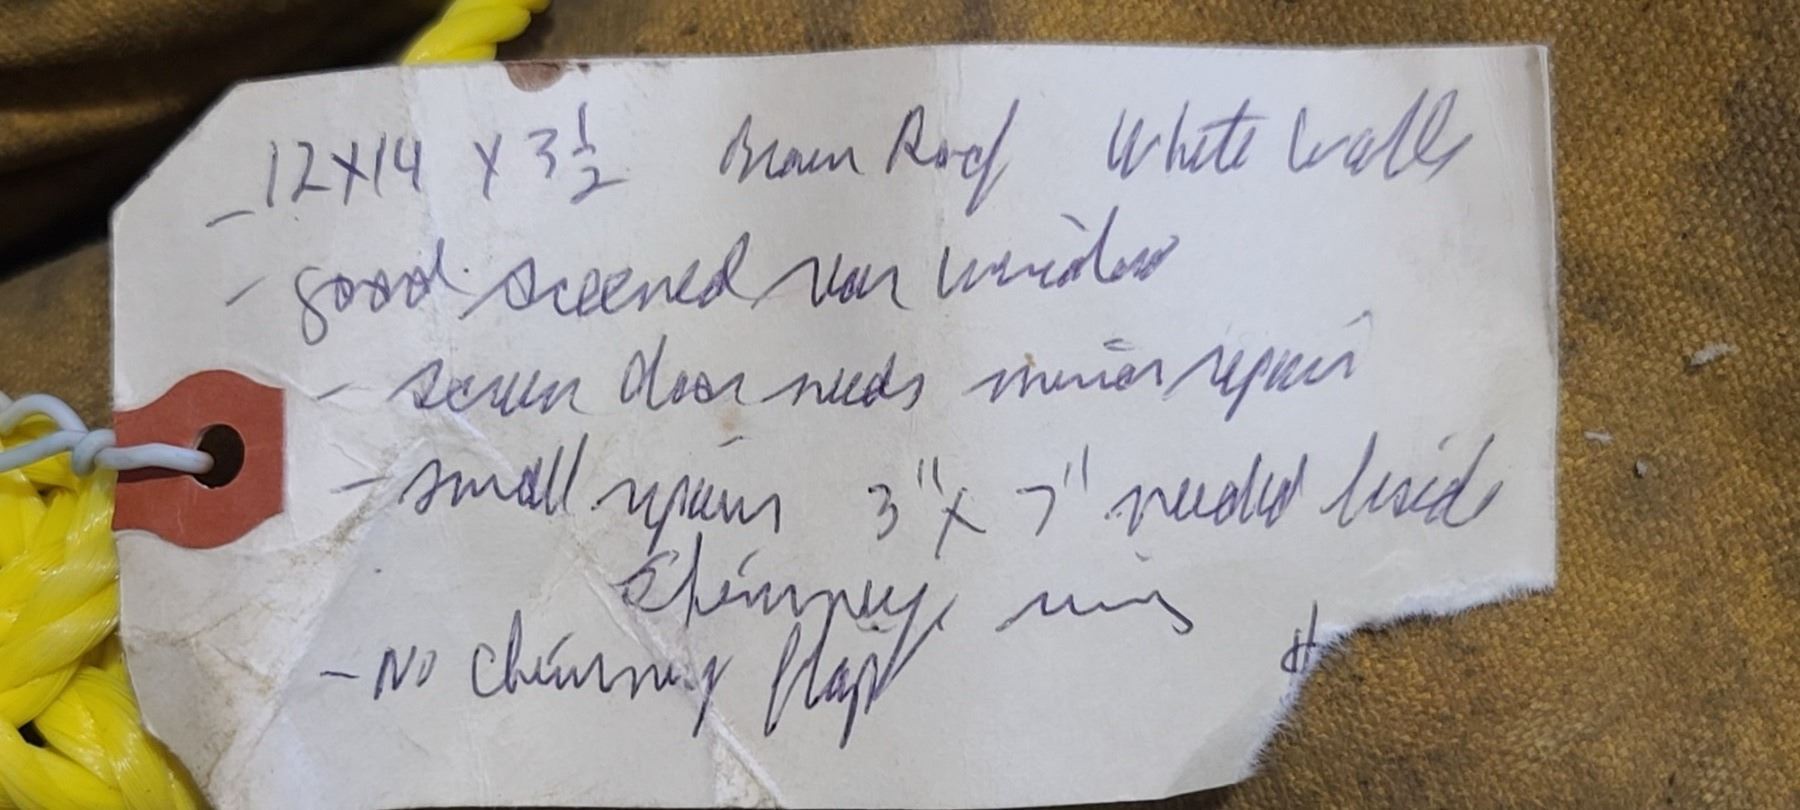 - 12x14 x 3 1/2 Brown Roof White Walls
- good screened rear window
- screen door needs minor repair
- small repair 3" x 7" needed beside
chimney ring
- No chimney flap